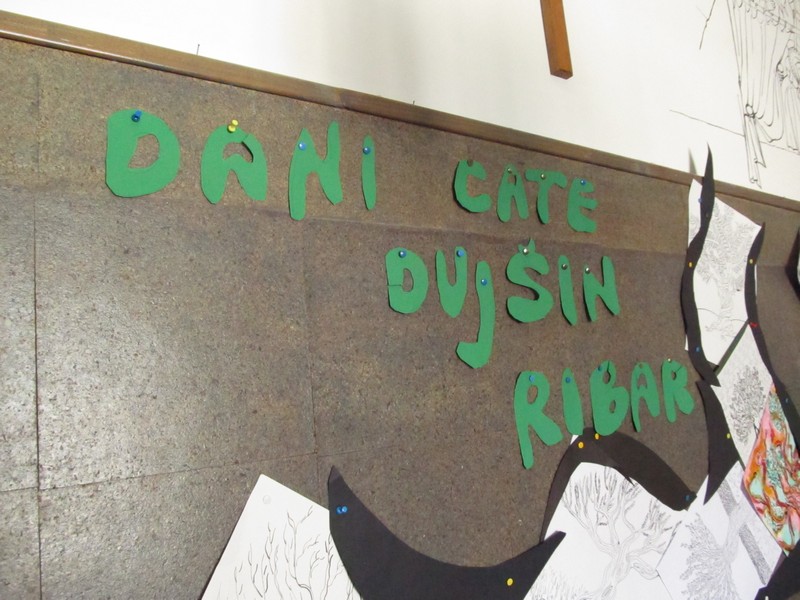 DANI CATE
DUJŠIN
RIBAR